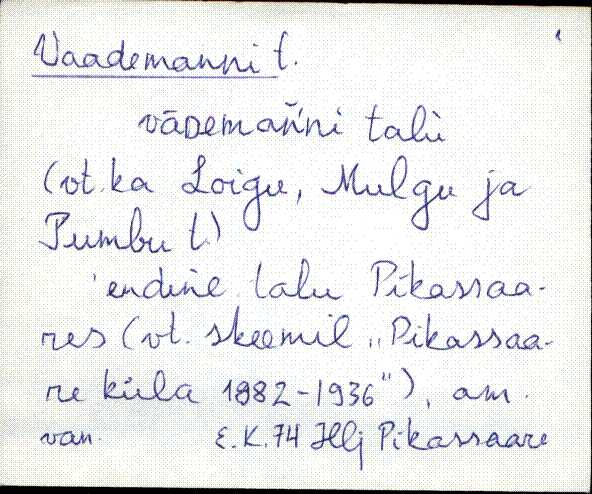 Vaademanni t.
vāDemañ'ni talù
(vt. ka Loigu, Mulgu ja
Pumbu t.)
endine talu Pikassaa-
res (vt. skeemil „Pikassaa-
re küla 1882-1936"), am.
van. E.K.74 Hlj Pikassaare